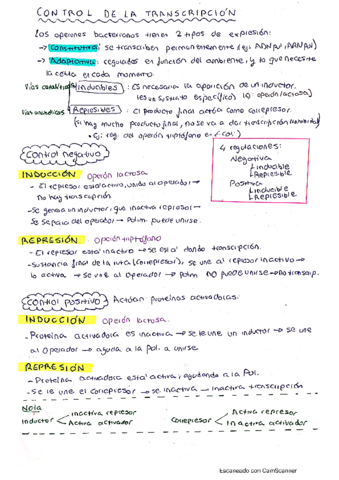 CONTROL DE LA TRANSCRIPCIÓN
Los operones bacterianos tienen 2 tipos de expresión:
→ Constitutiva: se transcriben permanentemente (ej: ADNpol, ARNpol)
→ Adaptativa: regulados en función del ambiente, y lo que necesite
la célula en cada momento.
Inducibles: Es necesaria la aparición de un inductor.
(es un sustrato específico) Ej: operón lactosa)
Represibles: El producto final actúa como correpresor.
(si hay mucho producto final, no se va a dar transcripción
Ej: reg. del operón triptófano en E. coli.
Control negativo
4 regulaciones:
Negativa
Inducible
Represible
Positiva
Inducible
Represible
INDUCCIÓN operón lactosa
- El represor está activo, unido al operador →
no hay transcripción
- Se genera un inductor, que inactiva represor →
Se separa del operador → Polim. puede unirse.
REPRESIÓN operón triptófano
- El represor está inactivo → se está dando transcripción.
- Sustancia final de la ruta (correpresor), se une al represor inactivo →
lo activa → se une al operador → Polim NO puede unirse → No transcrip.
Control positivo → Actúan proteínas activadoras.
INDUCCIÓN operón lactosa.
- Proteína activadora es inactiva → se le une un inductor → se une
al operador → ayuda a la Pol. a unirse.
REPRESIÓN
- Proteína activadora está activa, ayudando a la Pol.
- Se le une el correpresor → se inactiva → Inactiva transcripción
Nota
Inductor
Inactiva represor
Activa activador
Correpresor
Activa represor
Inactiva activador
Escaneado con CamScanner